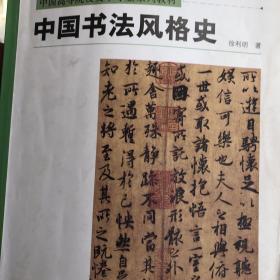 中国书法风格史
徐利明 著
所以遊目騁懷足以極視聽
娛信可樂也夫人之相與俯
一世或取諸懷抱悟言一室
或因寄所託放浪形骸之外
趣舍萬殊靜躁不同當其
於所遇暫得於己快然自
知老之將至及其所之既惓